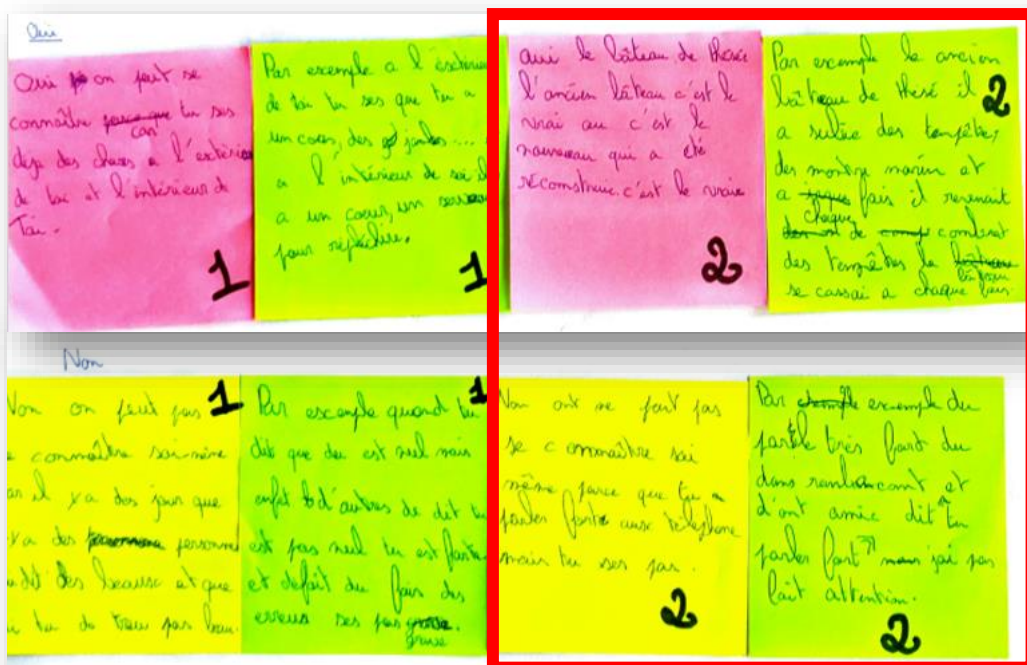 Oui
Oui on peut se
connaître parce que tu ses
car
deja des choses a l'extérieu
de toi et l'intérieur de
Toi.
1
Par escemple a l'éxtérieu
de toi tu ses que tu a
un corps, des jambes ...
a l'intérieur de soi il
a un coeur, un serveau
pour réfléchire.
1
oui le bâteau de thesée
l'ancien bâteau c'est le
vrai ou c'est le
nouveau qui a été
réconstruie. c'est le vraie
2
Par escemple le ancien
bâteau de thesé il
2
a subie des tempêtes,
des montre marin et
a chaque fois il revenait
de combat
des tempêtes le bâteau
se cassai a chaque fois.
Non
Non on peut pas
1
e connaître soi-même
ar il y a des jour que
y a des personne
dit des beause et que
tu te trouv pas beau.
Par escemple quand tu
1
dit que tu est nul mais
enfet d'autres de dit tu
est pas nul tu est forte
et defait du fais des
erreus ses pas grave.
grave
Non ont ne peut pas
se connaître soi
même parce que tu a
parler forte aux téléphone
mais tu ses pas.
2
Par exemple du
parle très fort du
dans et
d'ont amie dit tu
parles fort mais j'ai pas
fait attention.
2